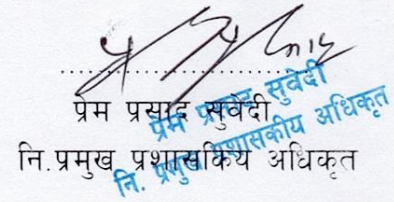 प्रेम प्रसाद सुवेदी
नि.प्रमुख प्रशासकिय अधिकृत
प्रेम प्रसाद सुवेदी
नि. प्रमुख प्रशासकीय अधिकृत